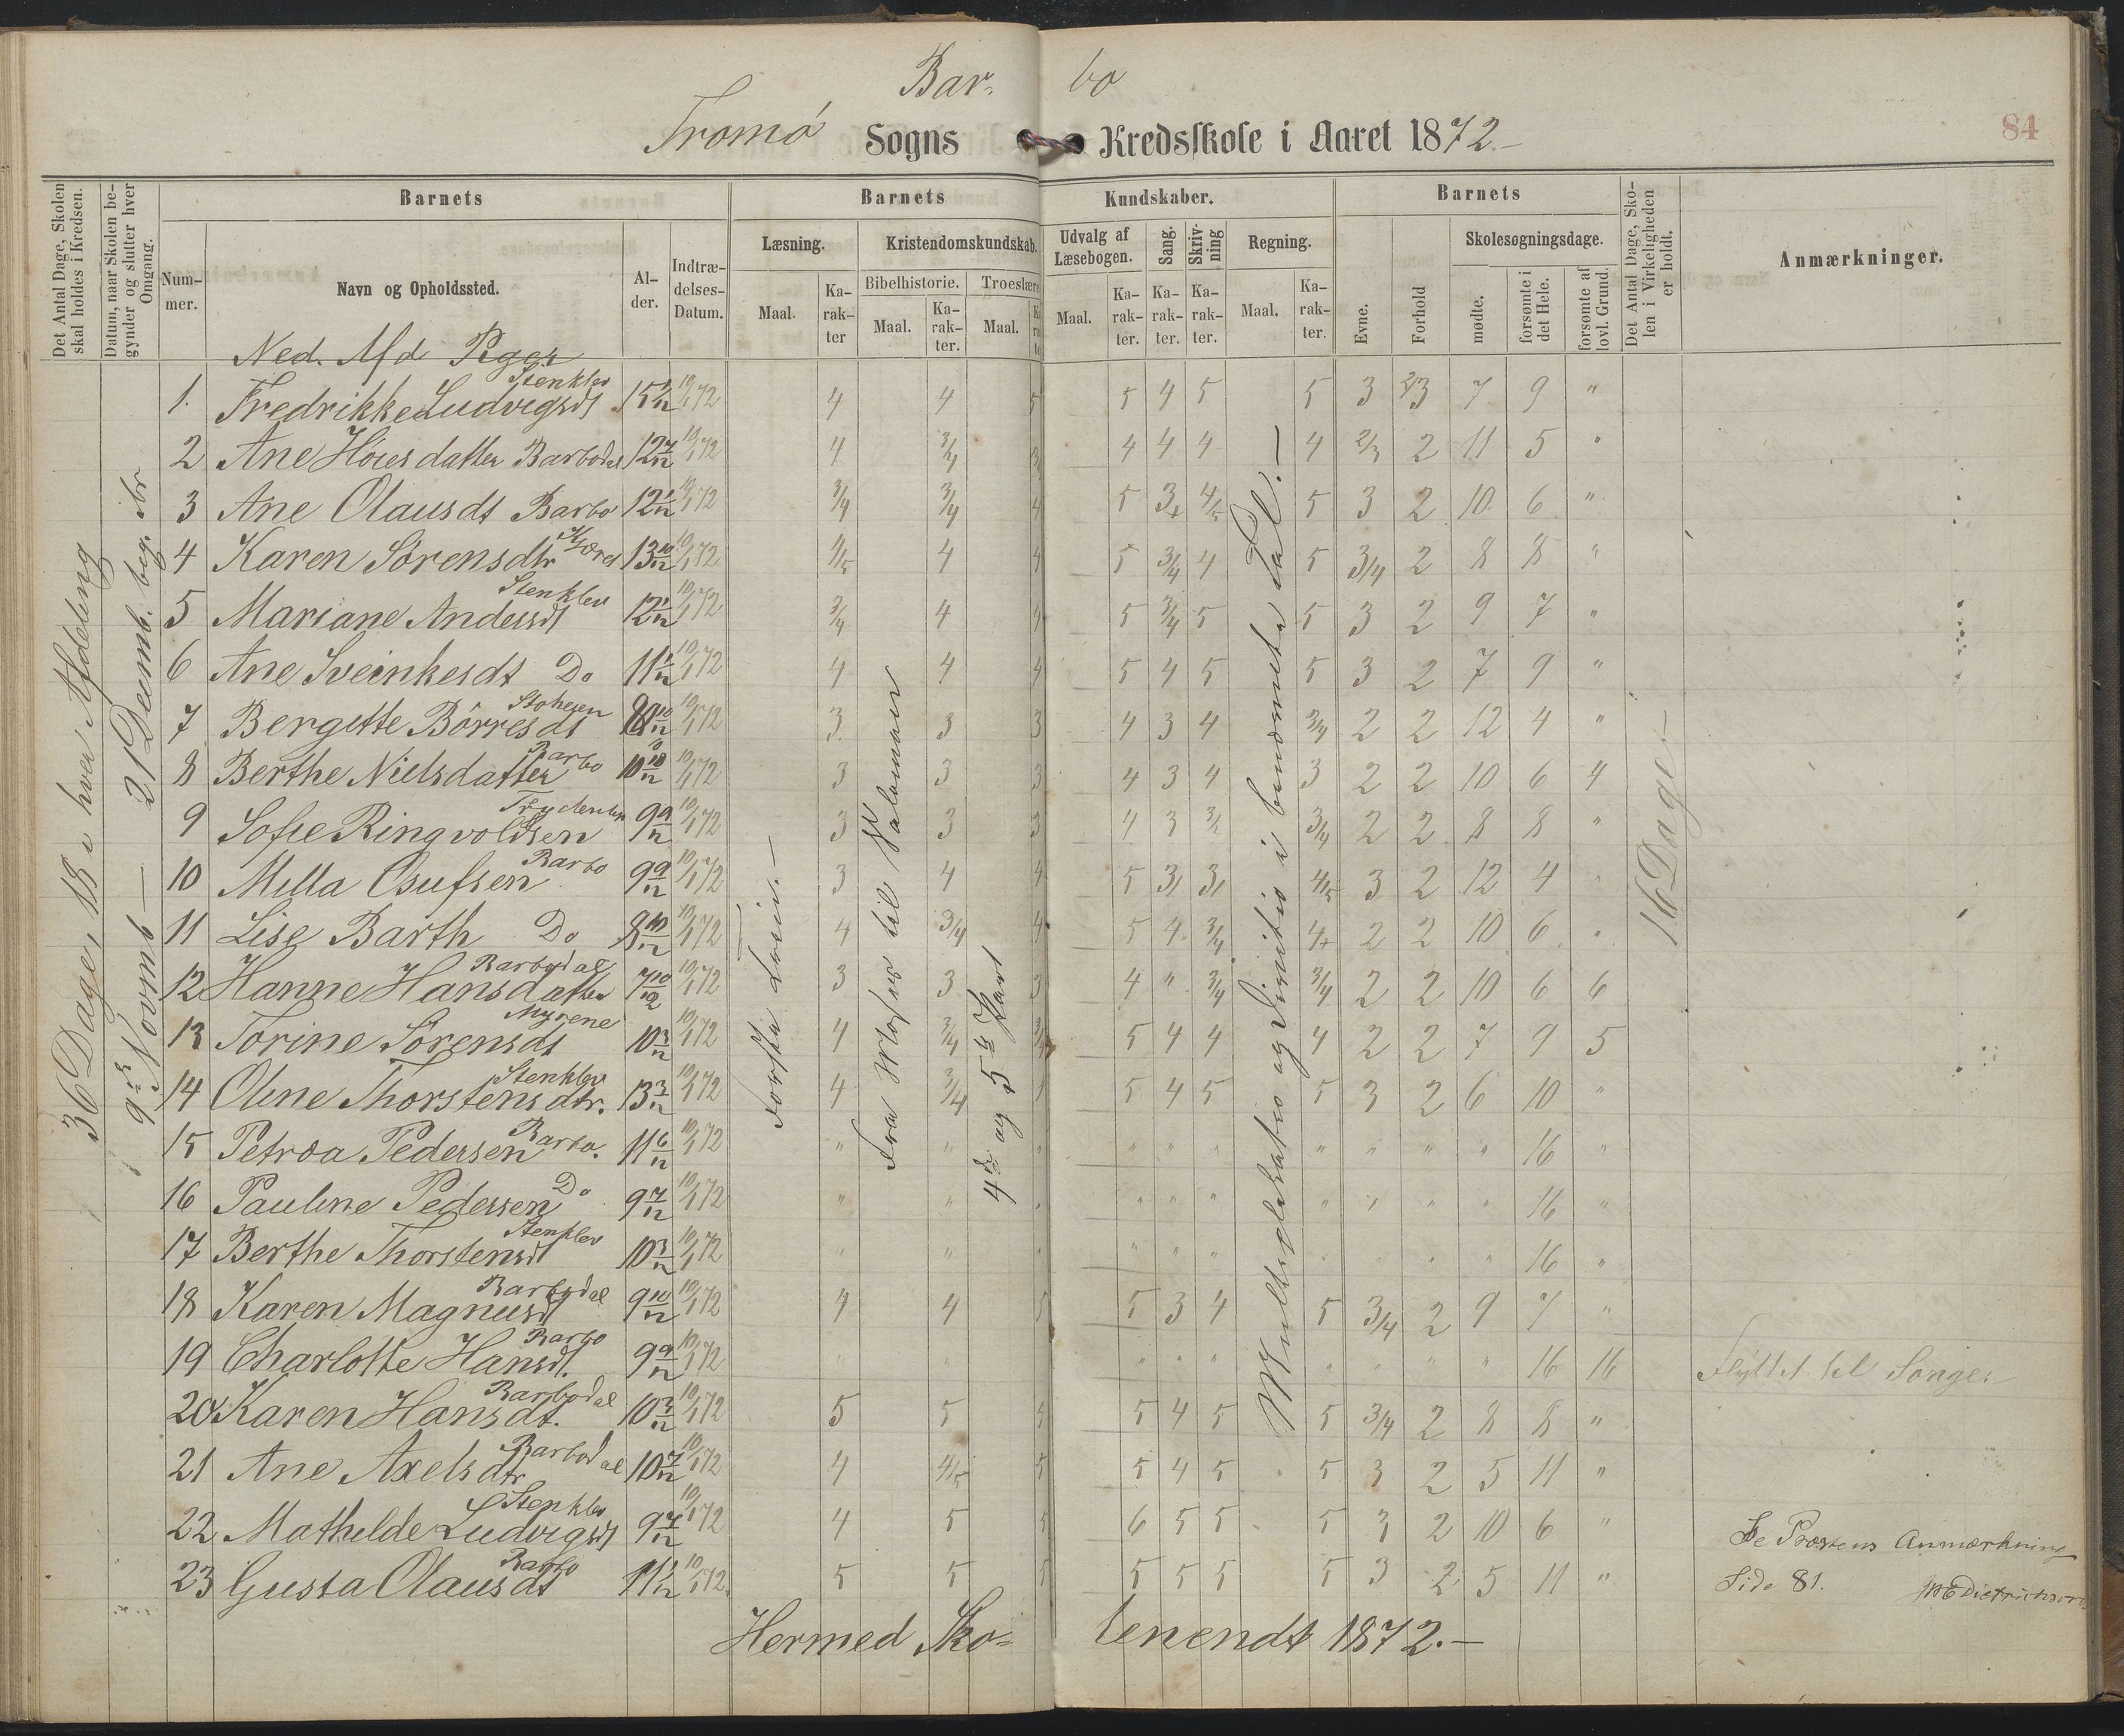 Bar- bo
Tromø Sogns Kredsskole i Aaret 1872.-
84
Det Antal Dage, Skolen skal holdes i Kredsen.
Datum, naar Skolen begynder og slutter hver Omgang.
Barnets
Nummer.
Navn og Opholdssted.
Alder.
Indtrædelses-Datum.
Barnets Kundskaber.
Læsning.
Maal.
Karakter
Kristendomskundskab.
Bibelhistorie.
Maal.
Karakter.
Troeslære
Maal.
Udvalg af Læsebogen.
Maal.
Karakter.
Sang.
Karakter.
Skrivning
Karakter.
Regning.
Maal.
Karakter.
Barnets
Evne.
Forhold
Skolesøgningsdage.
mødte.
forsømte i det Hele.
forsømte af lovl. Grund.
Det Antal Dage, Skolen i Virkeligheden er holdt.
Anmærkninger.
36 Dage, 18 i hver Afdeling
21 Decemb.
Ned. Afd Piger
1. Fredrikke Ludvigsdt Stenklev 10/1 72 4 4 5 5 4 5 5 3 7 9 "
2 Ane datter Barbodal 12 7/12 10/1 72 4 3/4 4 4 4 4 2/3 2 11 5 "
3 Ane Olausdt Barbo 10/1 72 3/4 3/4 4 5 3+ 4/5 5 3 2 10 6 "
4 Karen Sørensdtr 13 10/12 10/1 72 4/5 4 4 5 3/4 4 5 3/4 2 8 8 "
5 Mariane Andersdt Stenklev 10/1 72 3/4 4 4 5 3/4 5 5 3 2 9 7 "
6 Ane Sveinkesdt Do 10/1 72 4 4 4 5 4 5 5 3 2 7 9 "
7 Bergitte Børresdt 10/1 72 3 3 3 4 3 4 3/4 2 2 12 4 "
8 Berthe Nielsdatter Barbo 10/1 72 3 3 3 4 3 4 3 2 2 10 6 4
9 Sofie Ringvoldsen 9 9/12 10/1 72 3 3 3 4 3 3/4 2 2 8 8 "
10 Milla Osufsen Barbo 9 9/12 10/1 72 3 4 4 5 4/5 3 2 12 4 "
11 Lise Barth Do 8 10/12 10/1 72 4 3/4 4 5 4 3/4 4+ 2 2 10 6 "
12 Hanne Hansdatter Barbodal 7 10/12 10/1 72 3 3 3 4 " 3/4 3/4 2 2 10 6 6
13 Torine Sørensdt Myrene 10 3/12 10/1 72 4 3/4 3/4 5 4 4 4 2 2 7 9 5
14 Oline Thorstensdtr. Stenklev 13 3/12 10/1 72 4 3/4 4 5 4 5 5 3 2 6 10 "
15 Petrea Pedersen Barbo. 11 6/12 10/1 72 " " " " " " " " " " 16 "
16 Pauline Pedersen Do 9 7/12 10/1 72 " " " " " " " " " " 16 "
17 Berthe Thorstensdt Stenklev 10 3/12 10/1 72 " " " " " " " " " 16 "
18 Karen Magnusdt Barbodal 9 10/12 10/1 72 4 4 5 5 3 4 5 3/4 2 9 7 "
19 Charlotte Hansdt. Barbo 9 9/12 10/1 72 " " " " " " " " " 16 16 Flyttet til Songe
20 Karen Hansdt. Barbodal 10 3/12 10/1 72 5 5 5 4 5 5 3/4 2 8 8 "
21 Ane Axelsdtr Barbodal 10 7/12 10/1 72 4 4/5 5 5 4 5 5 3 2 5 11 "
22 Mathilde Ludvigsdt Stenklev 9 7/12 10/1 72 4 5 5 6 5 5 5 3 2 10 6 "
23 Gusta Olausdt Barbo 10/1 72. 5 5 5 5 5 5 5 3 2 5 11 "
Første Trin.-
4de og 5te Part
16 Dage.-
Se Prostens Anmærkning
Side 81. Dietrichson
Hermed Sko- lenendt 1872.-